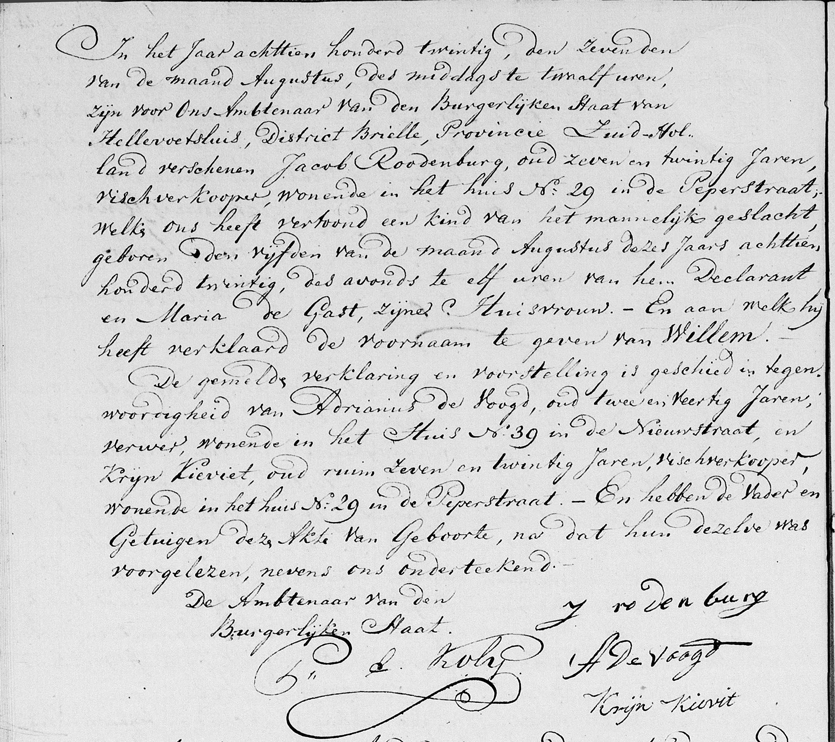 In het Jaar achttien honderd twintig, den Zevenden
van de maand Augustus, des middags te twaalf uren,
zijn voor Ons Ambtenaar van den Burgerlijken Staat van
Hellevoetsluis, District Brielle, Provincie Zuid-Hol-
land verschenen Jacob Roodenburg, oud zeven en twintig Jaren,
vischverkooper, wonende in het huis No. 29 in de Peperstraat;
welke ons heeft vertoond een kind van het mannelijk geslacht,
geboren den vyfden van de maand Augustus dezes Jaars achttien
honderd twintig, des avonds te elf uren van hem Declarant
en Maria de Gast, zijne Huisvrouw. – En aan welk hij
heeft verklaard de voornaam te geven van Willem. –
De gemelde verklaring en voorstelling is geschied in tegen-
woordigheid van Adrianus de Voogd, oud twee en veertig Jaren,
verwer, wonende in het Huis No. 39 in de Nieuwstraat, en
Krijn Kieviet, oud ruim Zeven en twintig Jaren, vischverkooper,
wonende in het huis No. 29 in de Peperstraat. – En hebben de Vader en
Getuigen deze Akte van Geboorte, na dat hun dezelve was
voorgelezen, nevens ons onderteekend. –
De Ambtenaar van den
Burgerlijken Staat.
y rodenburg
A De voogd
Krijn Kievit